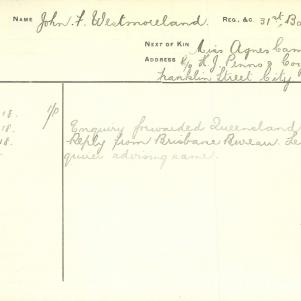 NAME John F. Westmoreland. REG. &C. 31st Ba
NEXT OF KIN Miss Agnes Cam
ADDRESS c/o H. J. Penno & Co
Franklin Street City
18. 1/0
18. Enquiry forwarded Queensland
18. Reply from Brisbane Bureau. Le
quirer advising same.